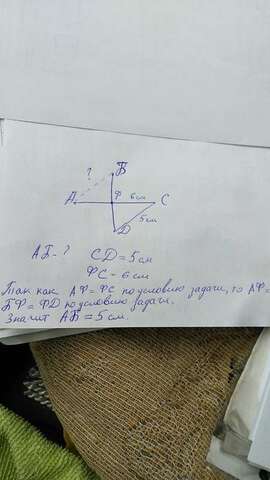 ?
Б
А
Ф 6 см
С
5 см
Д
АБ - ? СD = 5 см
ФС = 6 см
Так как АФ = ФС по условию задачи, то АФ =
БФ = ФD по условию задачи.
Значит АБ = 5 см.